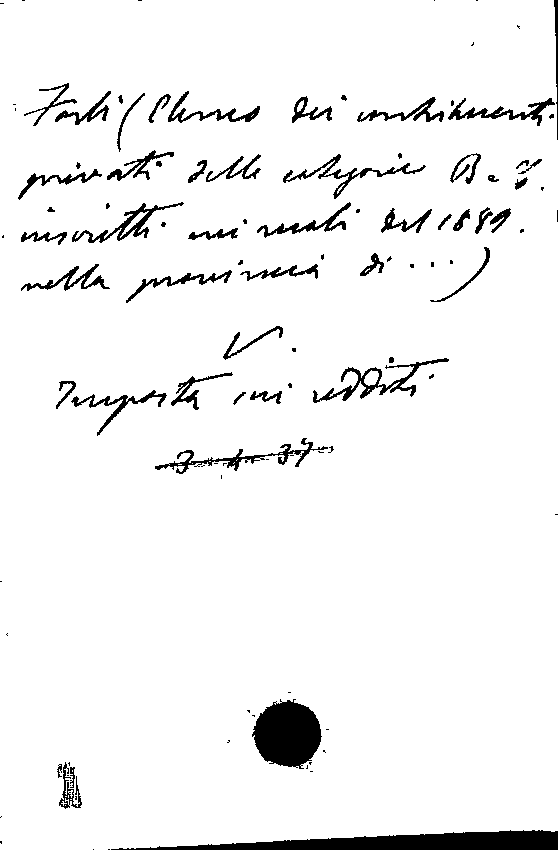 Forlì (Elenco dei contribuenti
privati delle categorie B e C.
inscritti nei ruoli del 1889.
nella provincia di ...)
V.
Imposta sui redditi
3 4 37